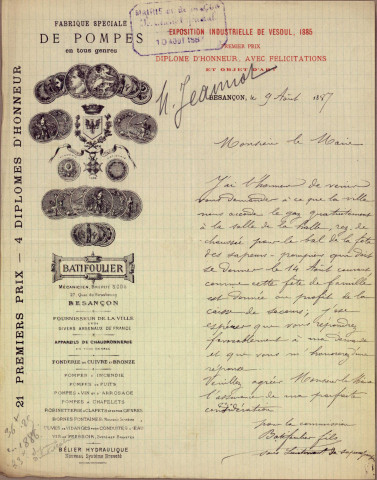 FABRIQUE SPECIALE
DE POMPES
en tous genres
MAIRIE DE BESANÇON
10 AOUT 1887
EXPOSITION INDUSTRIELLE DE VESOUL, 1885
PREMIER PRIX
DIPLOME D'HONNEUR, AVEC FELICITATIONS
ET OBJET D'ART
M. Jeannot
BESANÇON, le 9 Août 1887
21 PREMIERS PRIX — 4 DIPLOMES D'HONNEUR
BATIFOULIER
MÉCANICIEN, BREVETÉ S.G.D.G
27 Quai de Strasbourg
BESANÇON
FOURNISSEUR DE LA VILLE
DIVERS ARSENAUX DE FRANCE
APPAREILS DE CHAUDRONNERIE
FONDERIE DE CUIVRE & BRONZE
POMPES A INCENDIE
POMPES DE PUITS
POMPES A VIN ET D'ARROSAGE
POMPES A CHAPELETS
ROBINETTERIE & CLAPETS EN TOUS GENRES
BORNES FONTAINES
TUYAUX & VIDANGES POUR CONDUITES D'EAU
VIS DE PRESSOIR
BÉLIER HYDRAULIQUE
Nouveau Système Breveté
Monsieur le Maire
J'ai l'honneur de venir
vous demander à ce que la ville
nous accorde le gaz gratuitement
à la salle de la halle, rez de
chaussée pour le bal de la fête
des sapeurs-pompiers qui doit
se donner le 14 Août courant,
comme cette fête de famille
est donnée au profit de la
caisse de secours, j'ose
espérer que vous répondrez
favorablement à ma demande
et que vous m'honorerez d'une
réponse
Veuillez agréer Monsieur le Maire
l'assurance de ma parfaite
considération
pour la commission
Batifoulier fils
sous lieutenant de sapeurs pompiers